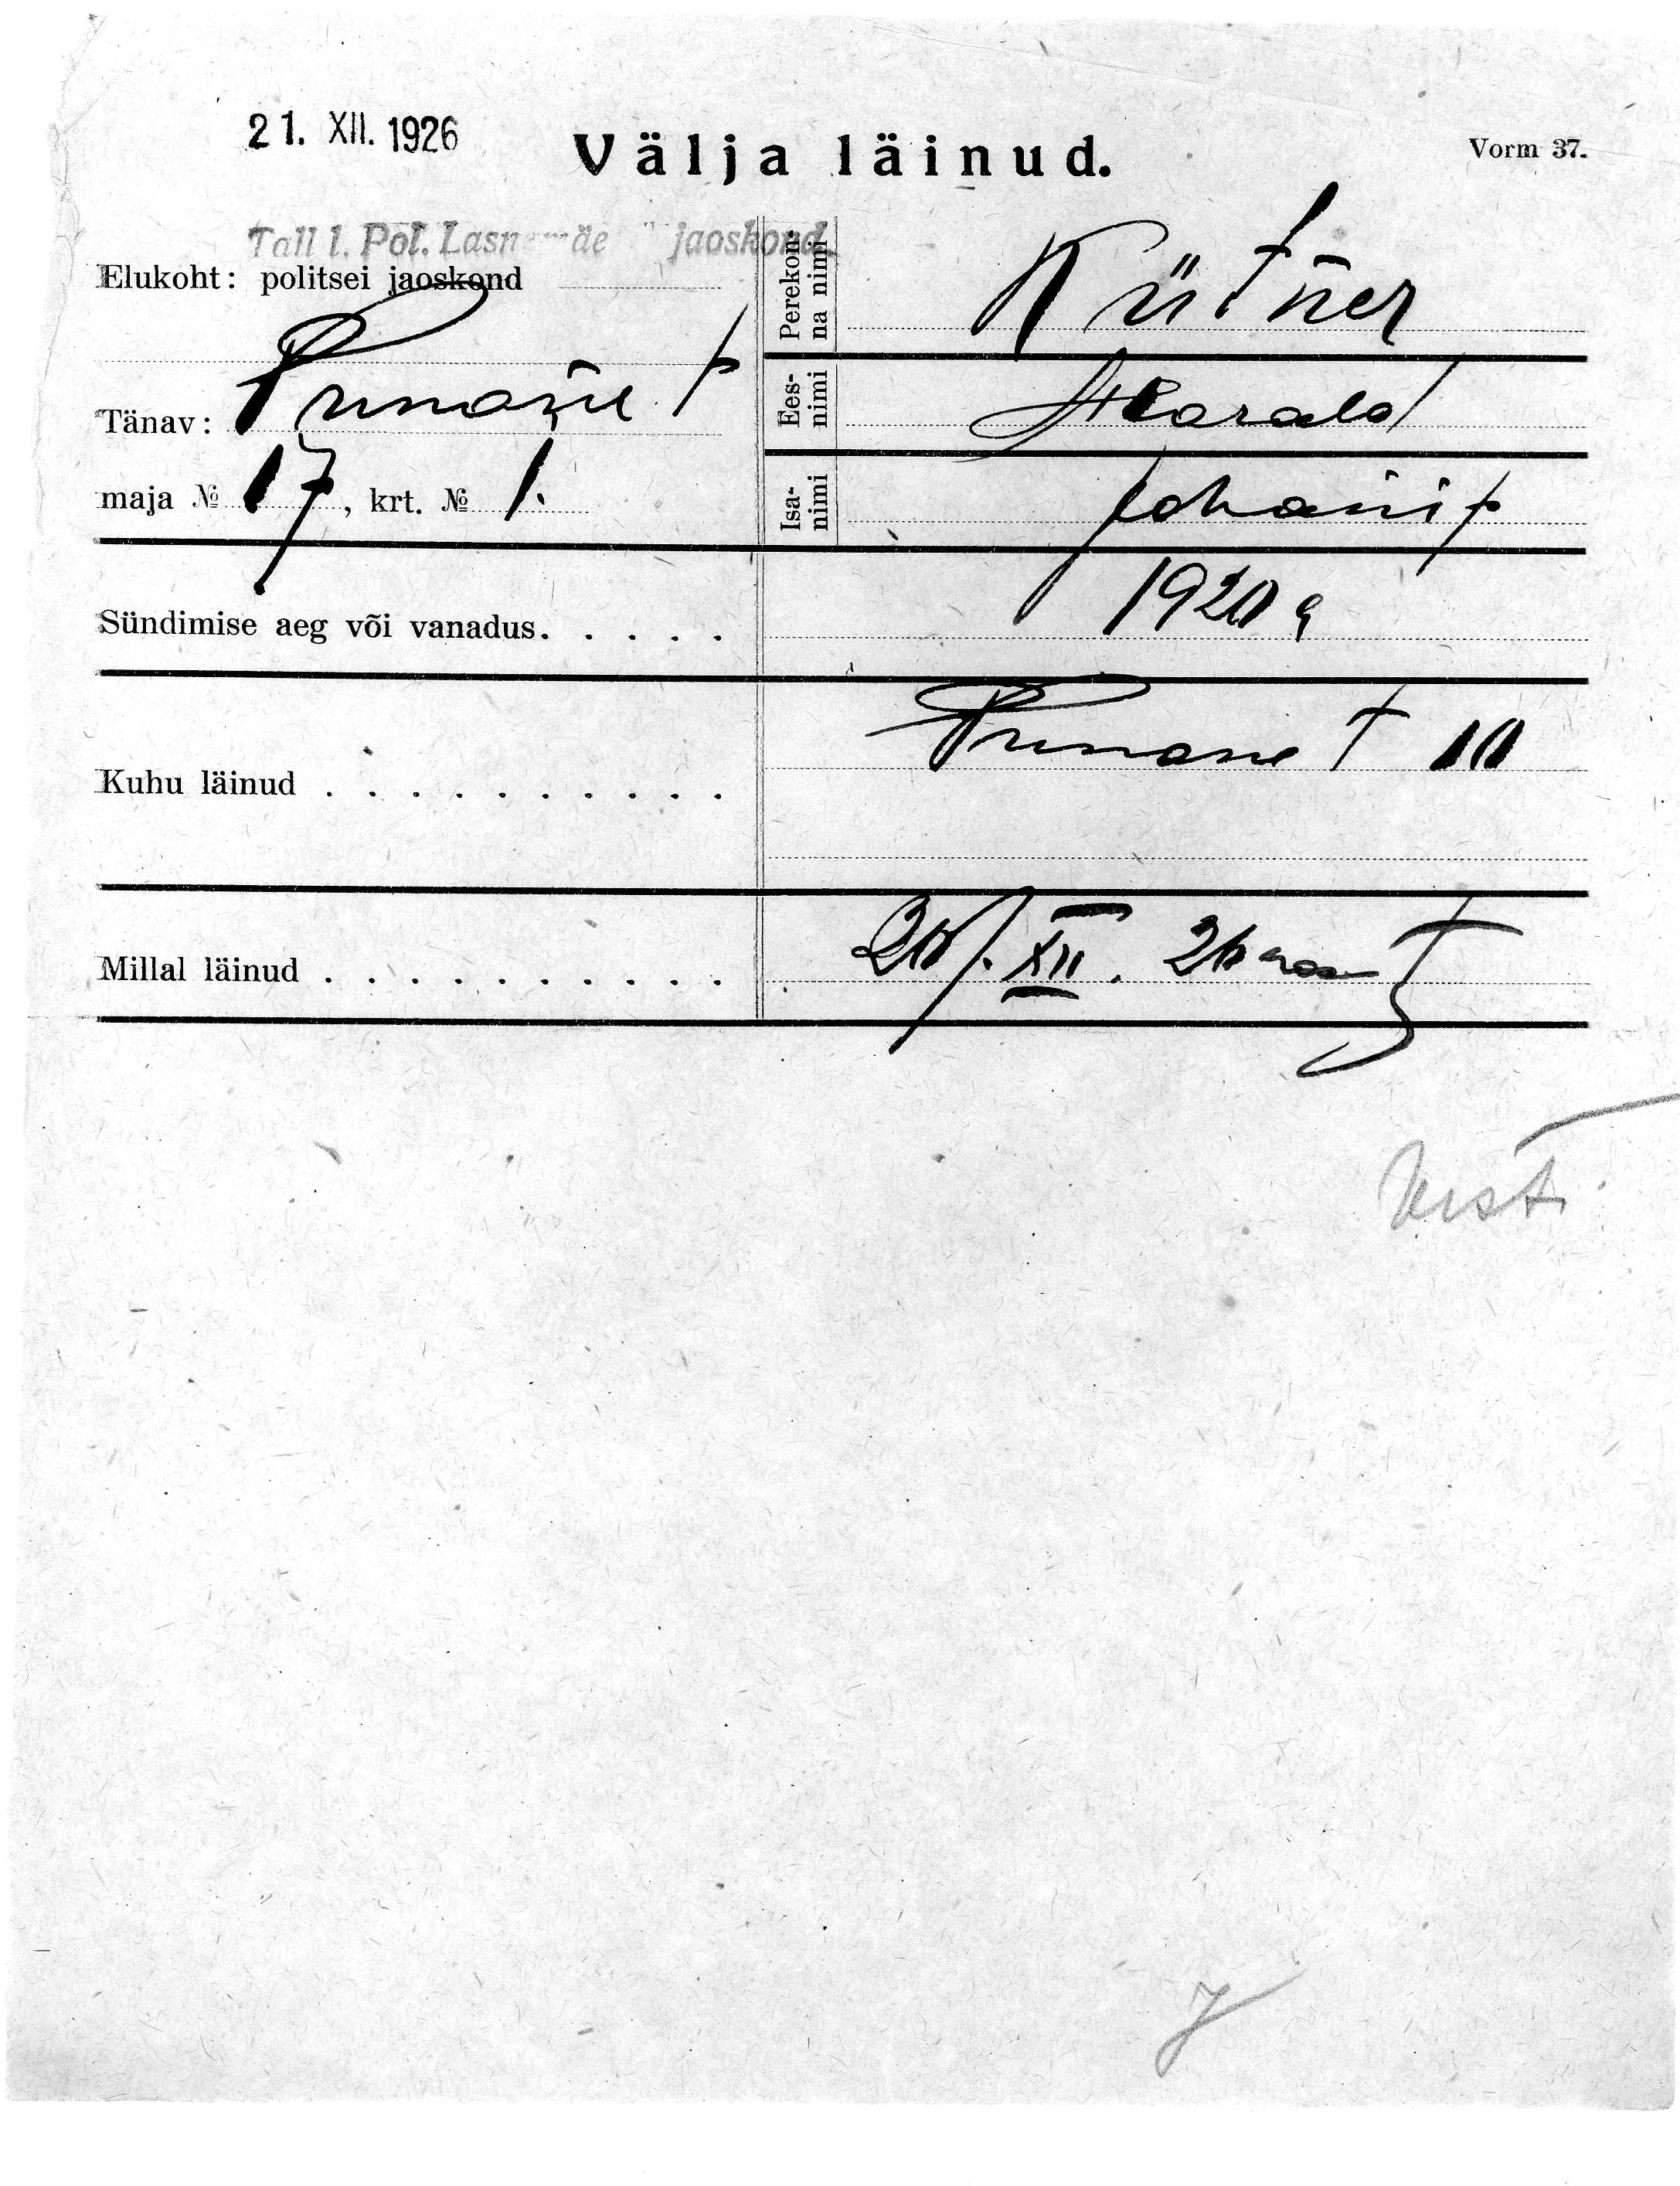 21. XII. 1926
Välja läinud.
Vorm 37.
Tall l. Pol. jaoskond
Elukoht: politsei jaoskond
Tänav: Punane t
maja № 17, krt. № 1.
Perekonna nimi Kütner
Eesnimi Harald
Isanimi Johani p
Sündimise aeg või vanadus. . . . . 1920 a
Kuhu läinud . . . . . . . . . . Punane t 10
Millal läinud . . . . . . . . . . 20/. XII. 26